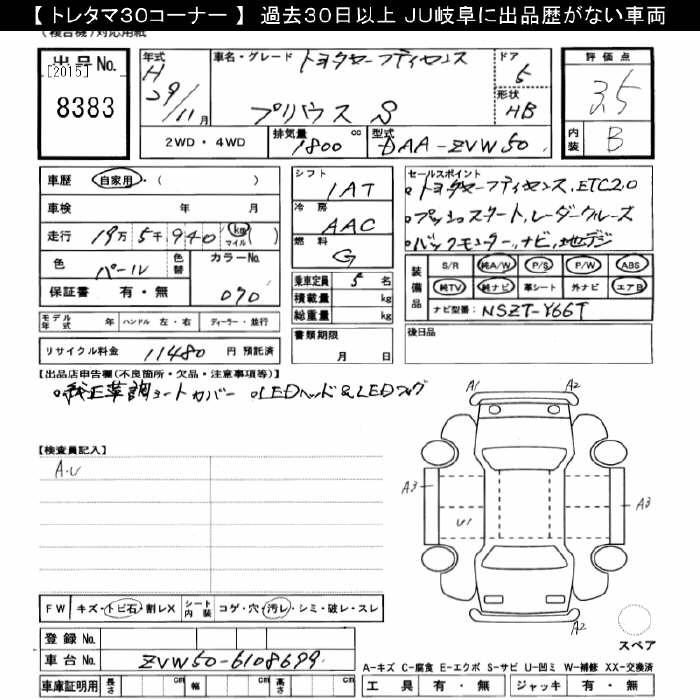 【トレタマ30コーナー】 過去30日以上 JU岐阜に出品歴がない車両
(複合機)対応用紙
出品 No.
[2015]
8383
年式
H
29/11月
車名・グレード
トヨタセーフティセンス
プリウス S
ドア
5
形状
HB
評価点
3.5
内装
B
2WD・4WD
排気量
1800 cc
型式
DAA-ZVW50
車歴 自家用・( )
車検 年 月
走行 19万 5千 940 km マイル ( )
色 パール 色替 カラーNo.
070
保証書 有・無
モデル年式 年 ハンドル 左・右 ディーラー・並行
リサイクル料金 11480 円 預託済
シフト
1AT
冷房
AAC
燃料
G
乗車定員 5 名
積載量 kg
総重量 kg
書類期限
月 日
セールスポイント
・トヨタセーフティセンス, ETC2.0
・プッシュスタート, レーダークルーズ
・バックモニター, ナビ, 地デジ
装備品
S/R 純A/W P/S P/W ABS
純TV 純ナビ 革シート 外ナビ エアB
ナビ型番: NSZT-Y66T
後日品
【出品店申告欄(不良箇所・欠品・注意事項等)】
・純正革調シートカバー ・LEDヘッド&LEDフォグ
【検査員記入】
A.U
A1
A2
A3
U1
A3
A2
FW キズ・トビ石・割レX シート内装 コゲ・穴・汚レ・シミ・破レ・スレ
登録 No.
車台 No. ZVW50-6108699
車庫証明用 長さ cm 幅 cm 高さ cm
スペア
A-キズ C-腐食 E-エクボ S-サビ U-凹ミ W-補修 XX-交換済
工具 有・無 ジャッキ 有・無